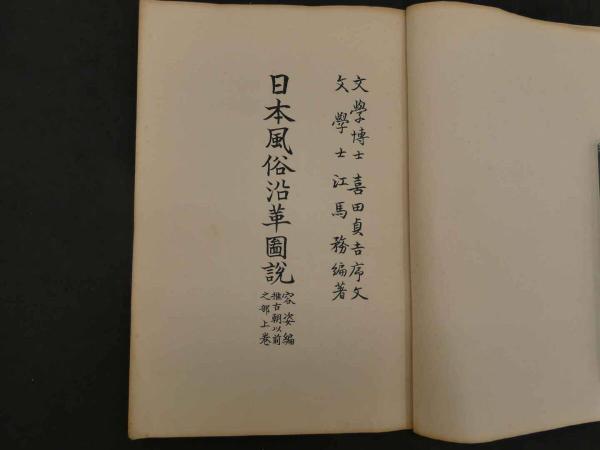 文學博士 喜田貞吉序文
文學士 江馬務編著
日本風俗沿革圖說
容姿編
推古朝以前
之部上卷